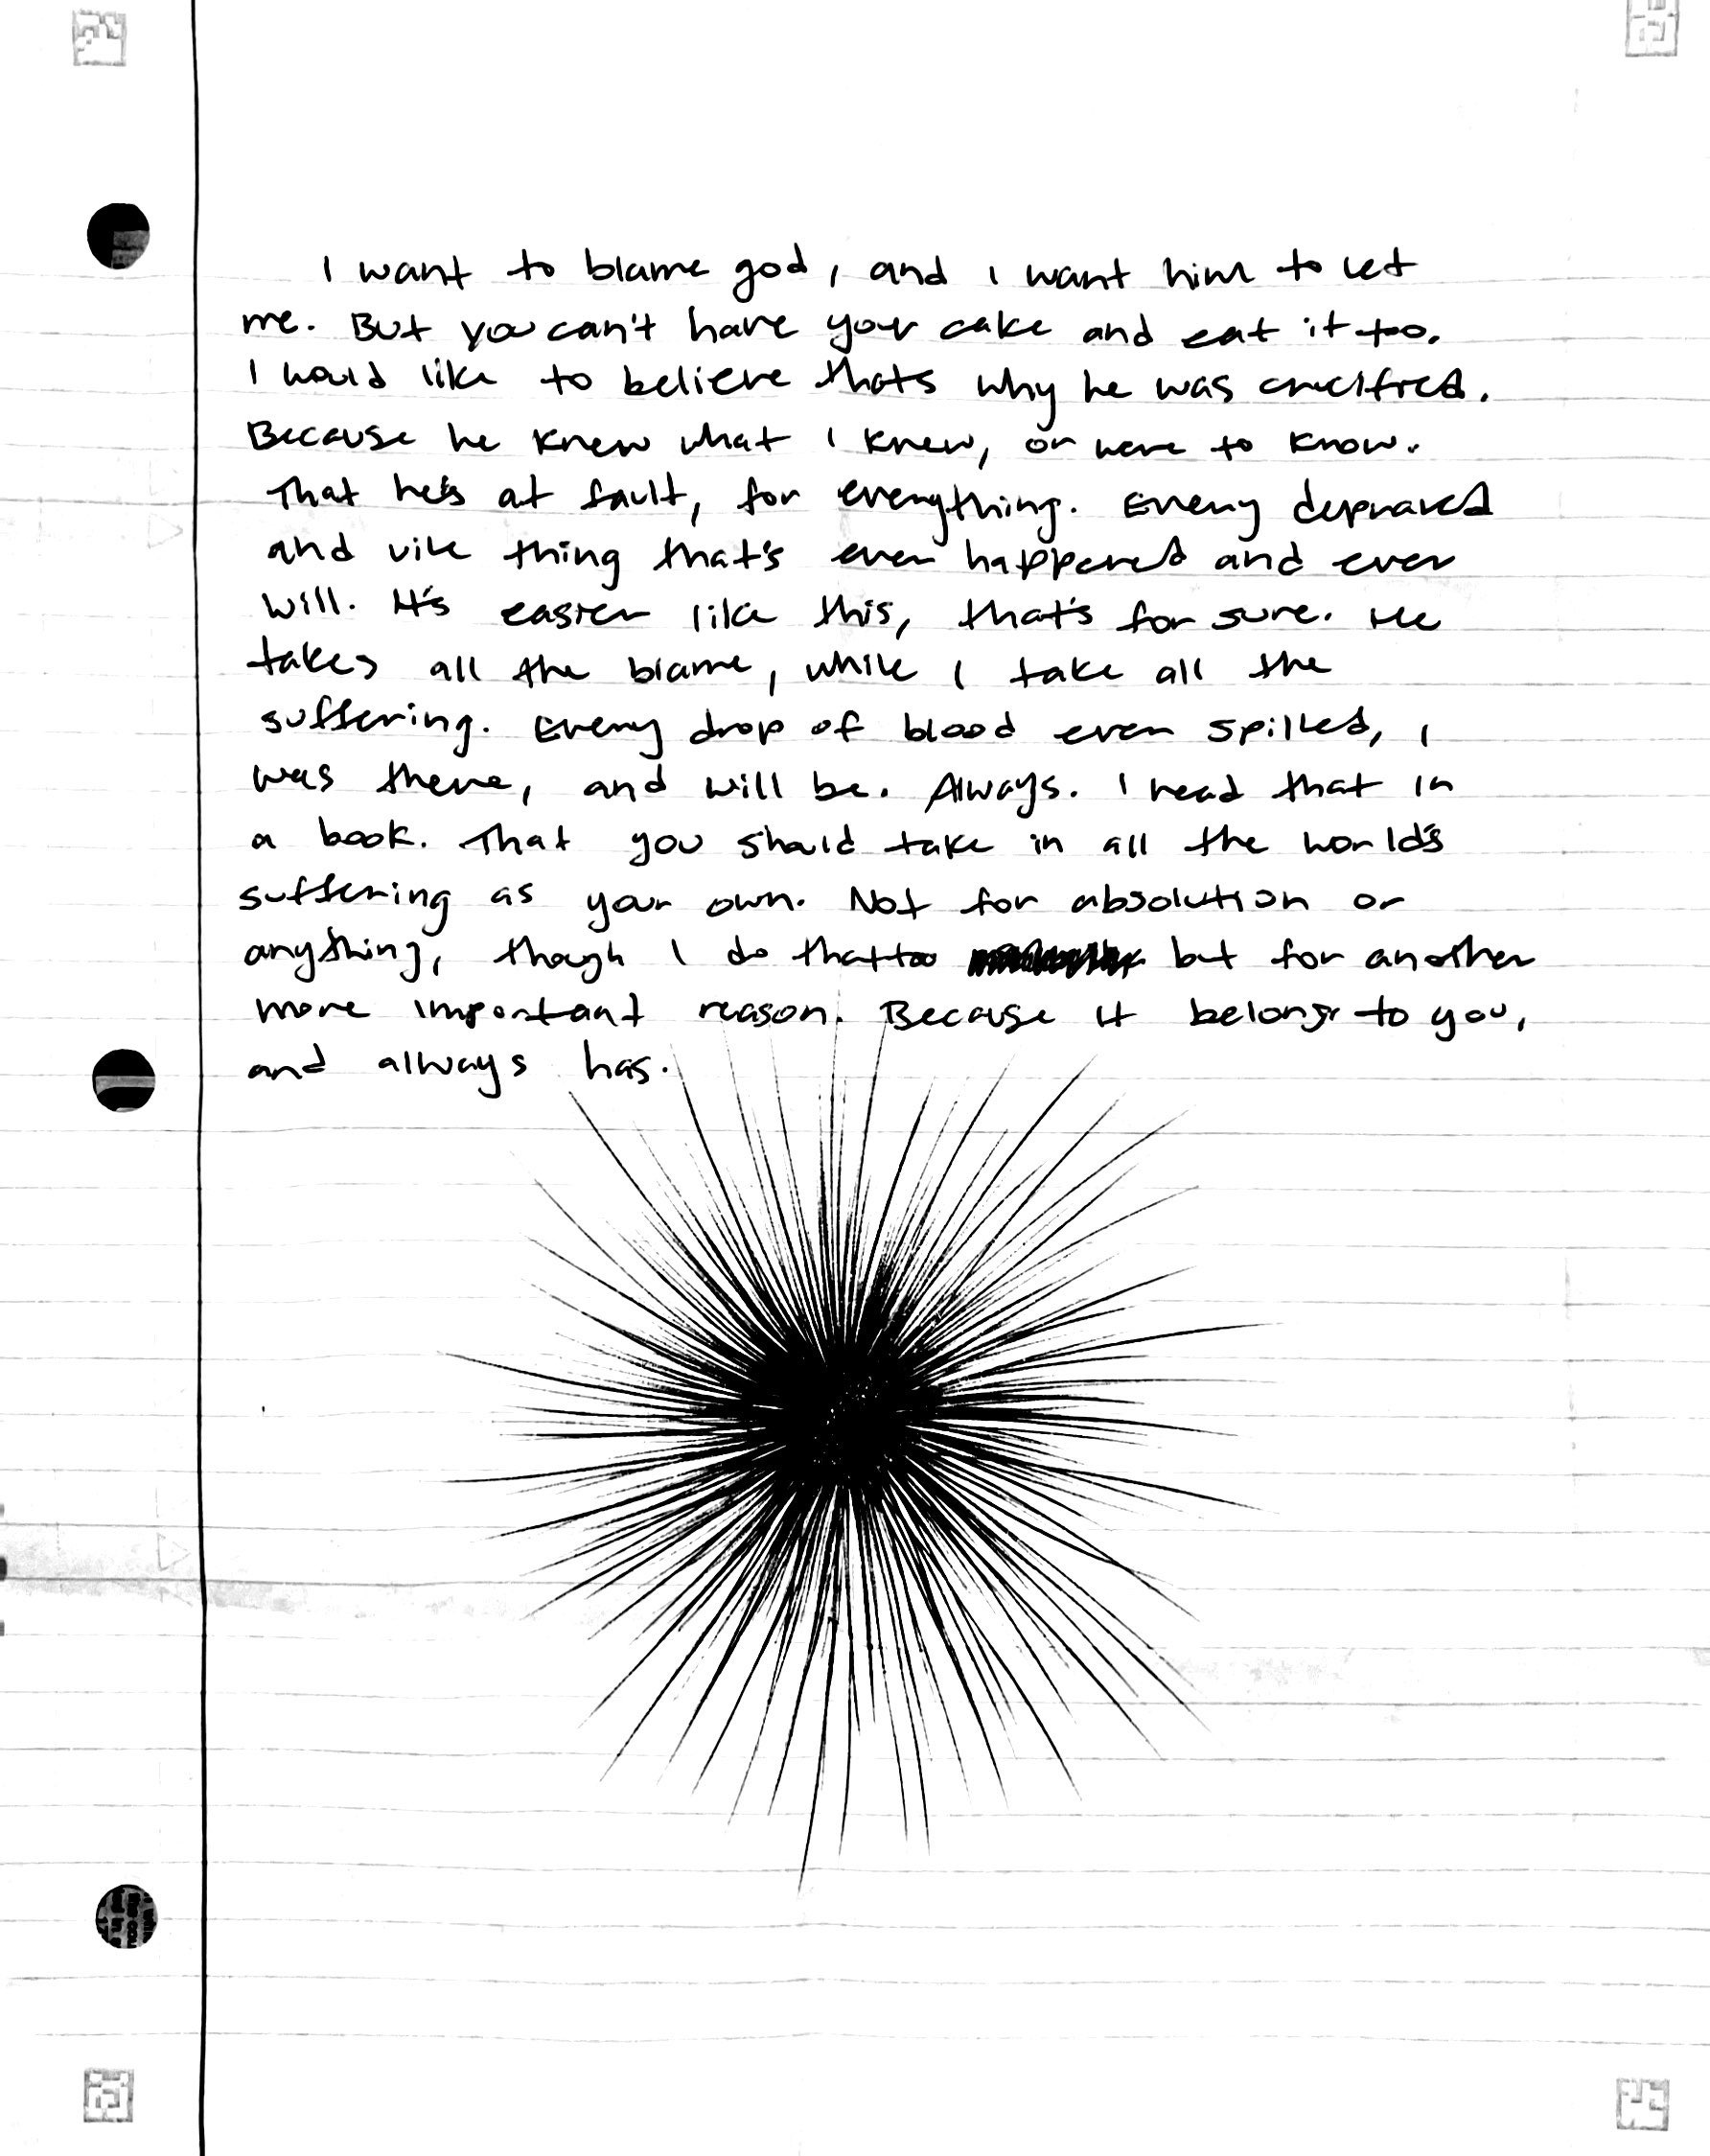 I want to blame god, and I want him to let
me. But you can't have your cake and eat it too.
I would like to believe thats why he was crucified.
Because he knew what I knew, or were to know.
That he's at fault, for everything. Every depraved
and vile thing that's ever happened and ever
will. It's easier like this, that's for sure. He
takes all the blame, while I take all the
suffering. Every drop of blood ever spilled, I
was there, and will be. Always. I read that in
a book. That you should take in all the world's
suffering as your own. Not for absolution or
anything, though I do that too but for another
more important reason. Because it belongs to you,
and always has.